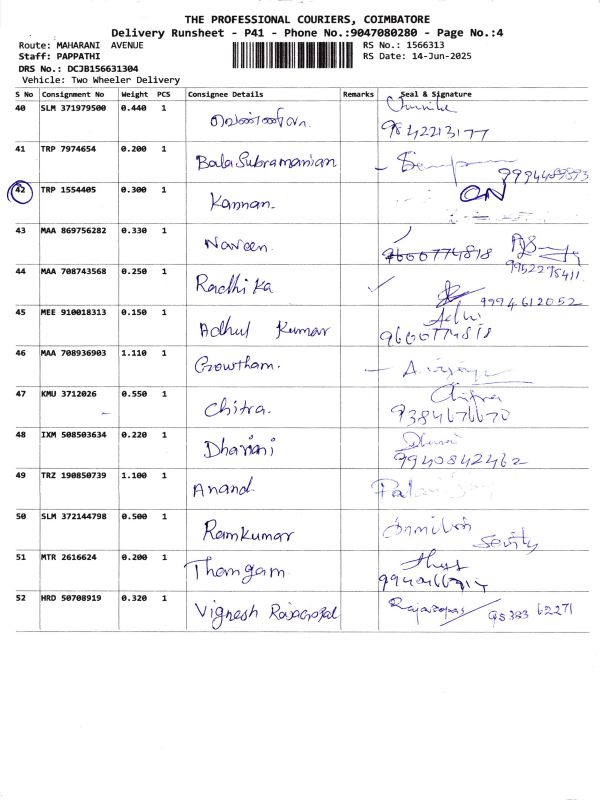 THE PROFESSIONAL COURIERS, COIMBATORE
Delivery Runsheet - P41 - Phone No.:9047080280 - Page No.:4
Route: MAHARANI AVENUE RS No.: 1566313
Staff: PAPPATHI RS Date: 14-Jun-2025
DRS No.: DCJB156631304
Vehicle: Two Wheeler Delivery
S No Consignment No Weight PCS Consignee Details Remarks Seal & Signature
40 SLM 371979500 0.440 1
9842213177
41 TRP 7974654 0.200 1 BalaSubramanian
42 TRP 1554405 0.300 1 Kannan. ON
43 MAA 869756282 0.330 1 Naveen 9600774818
9952275411
44 MAA 708743568 0.250 1 Radhika 9994612052
45 MEE 910018313 0.150 1 Adhul Kumar 9600774818
46 MAA 708936903 1.110 1 Growtham.
47 KMU 3712026 0.550 1 Chitra. Chitra
9384676670
48 IXM 508503634 0.220 1 Dharini
9940842462
49 TRZ 190850739 1.100 1 Anand.
50 SLM 372144798 0.500 1 Ramkumar
51 MTR 2616624 0.200 1 Thamgam
52 HRD 50708919 0.320 1 Vignesh Rajagopal 98383 62271